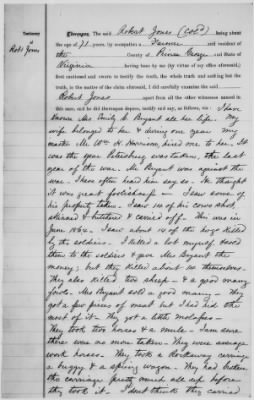 Testimony
of
Robt Jones
Whereupon, The said Robert Jones (Col'd) being about
the age of 71 years, by occupation a Farmer and resident of
the County of Prince George and State of
Virginia having been by me (by virtue of my office aforesaid,)
first cautioned and sworn to testify the truth, the whole truth and nothing but the
truth, in the matter of the claim aforesaid, I did carefully examine the said
Robert Jones apart from all the other witnesses named in
this case, and he did thereupon depose, testify and say, as follows, viz: I have
known Mrs Emily A. Bryant all her life. My
wife belonged to her & during one year my
master Mr Wm H. Harrison hired me to her. It
was the year Petersburg was taken, the last
year of the war. Mr Bryant was against the
war. I have often heard him say so. He thought
it was great foolishness — I saw some of
his property taken. I saw 14 of his cows shot,
skinned & butchered & carried off. This was in
June 1864. I saw about 14 of the hogs killed
by the soldiers. I killed a lot myself & sold
them to the soldiers & gave Mrs Bryant the
money; but they killed about 14 themselves.
They also killed two sheep — & a good many
fowls. Mrs Bryant sold a good many — They
got a few pieces of meat but I had hid the
most of it — They got a little molasses —
They took two horses & a mule — I am sure
there was no more taken — They were average
work horses. They took a Rockaway carriage
a buggy & a spring wagon. They had broken
the carriage pretty much all up before
they took it. I don't think they carried